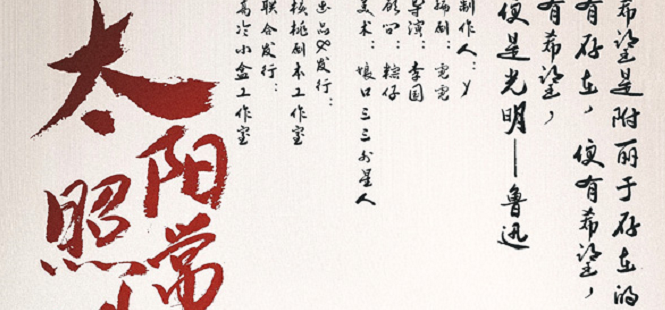 希望是附丽于存在的
有存在，便有希望，
有希望，
便是光明——鲁迅
制作人：Y
编剧：
导演：李国
顾问：粽仔
美术：壤口三三外星人
出品&发行：
核桃剧本工作室
联合发行：
高冷小盒工作室
太阳
照常